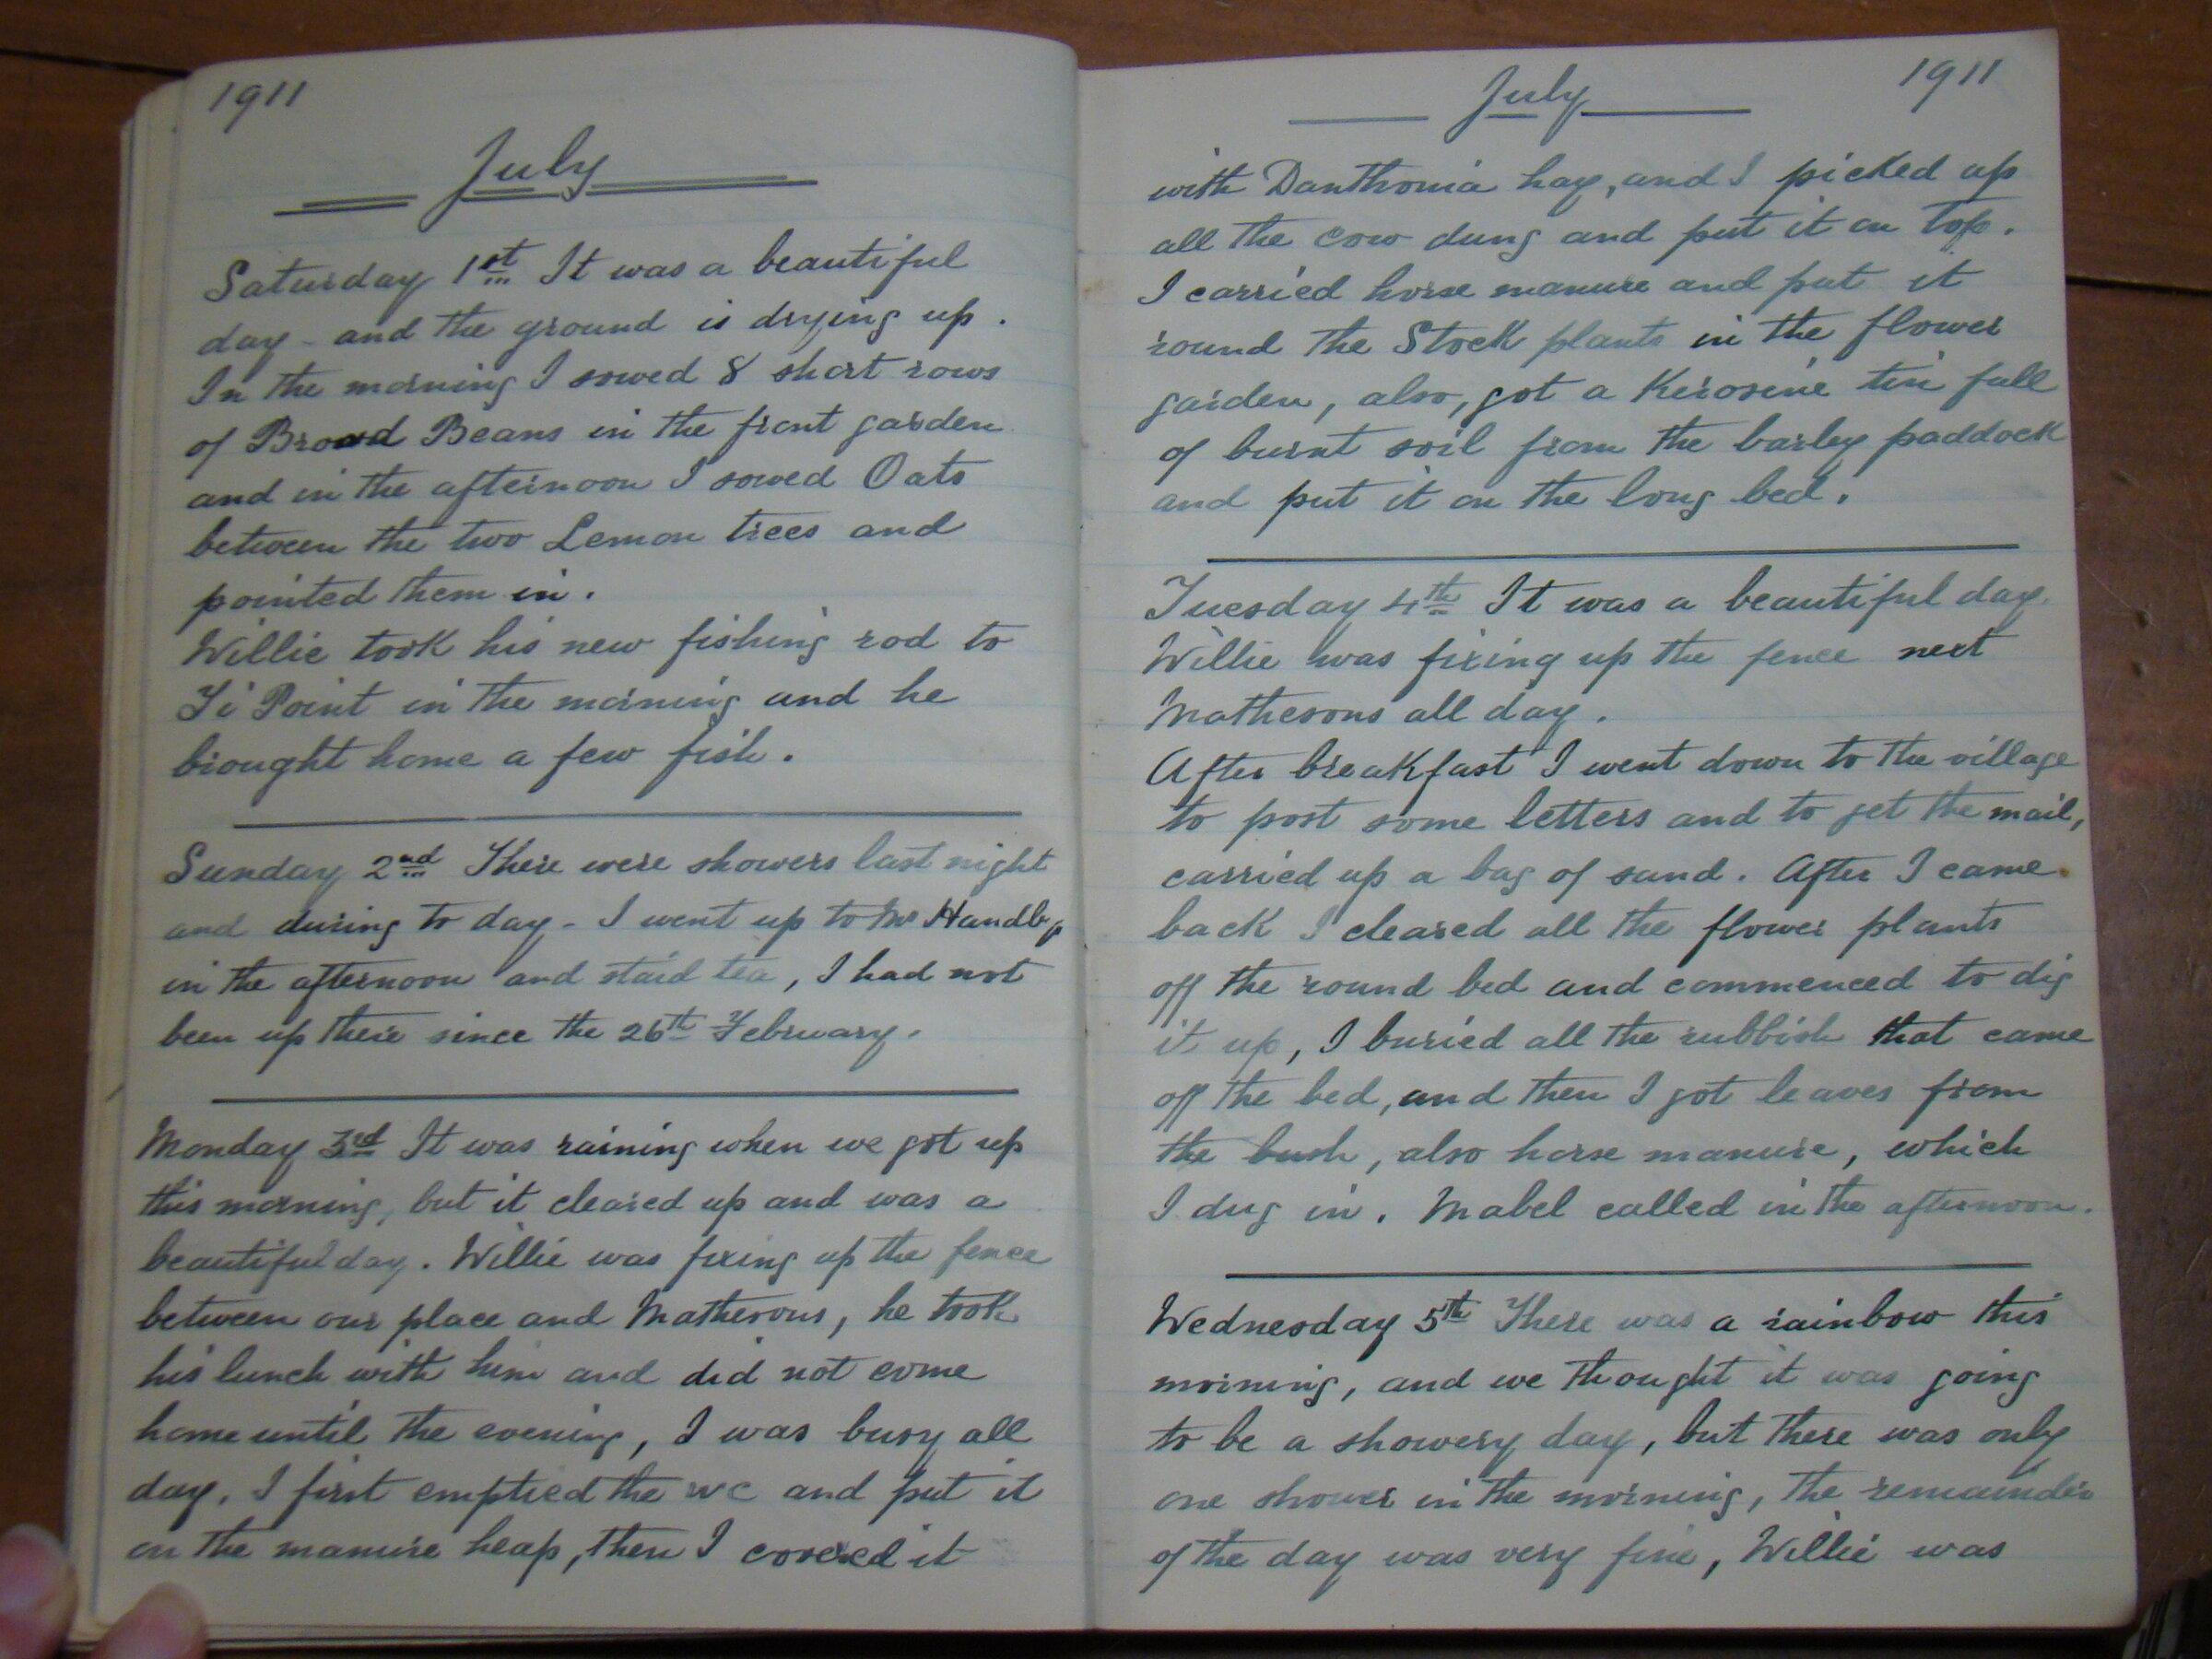 1911
July
Saturday 1st It was a beautiful
day - and the ground is drying up.
In the morning I sowed 8 short rows
of Broad Beans in the front garden
and in the afternoon I sowed Oats
between the two Lemon trees and
pointed them in.
Willie took his new fishing rod to
Ti Point in the morning and he
brought home a few fish.
Sunday 2nd There were showers last night
and during to day - I went up to Mr Handley
in the afternoon and staid tea, I had not
been up there since the 26th February.
Monday 3rd It was raining when we got up
this morning, but it cleared up and was a
beautiful day. Willie was fixing up the fence
between our place and Mathesons, he took
his lunch with him and did not come
home until the evening, I was busy all
day. I first emptied the wc and put it
on the manure heap, then I covered it
July 1911
with Danthonia hay, and I picked up
all the cow dung and put it on top.
I carried horse manure and put it
round the Stock plants in the flower
garden, also, got a Kerosine tin full
of burnt soil from the barley paddock
and put it on the long bed.
Tuesday 4th It was a beautiful day.
Willie was fixing up the fence next
Mathesons all day.
After breakfast I went down to the village
to post some letters and to get the mail,
carried up a bag of sand. After I came
back I cleared all the flower plants
off the round bed and commenced to dig
it up, I buried all the rubbish that came
off the bed, and then I got leaves from
the bush, also horse manure, which
I dug in. Mabel called in the afternoon.
Wednesday 5th There was a rainbow this
morning, and we thought it was going
to be a showery day, but there was only
one shower in the morning, the remainder
of the day was very fine, Willie was